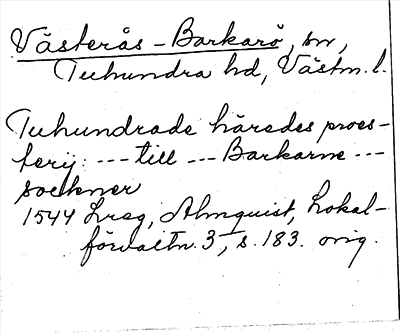 Västerås-Barkarö, sn,
Tuhundra hd, Västm. l.
Tuhundrade häredes proes-
terij: --- till --- Barkarne ---
sockner
1544 Lreg, Almquist, Lokal-
förvaltn. 3, s. 183. orig.